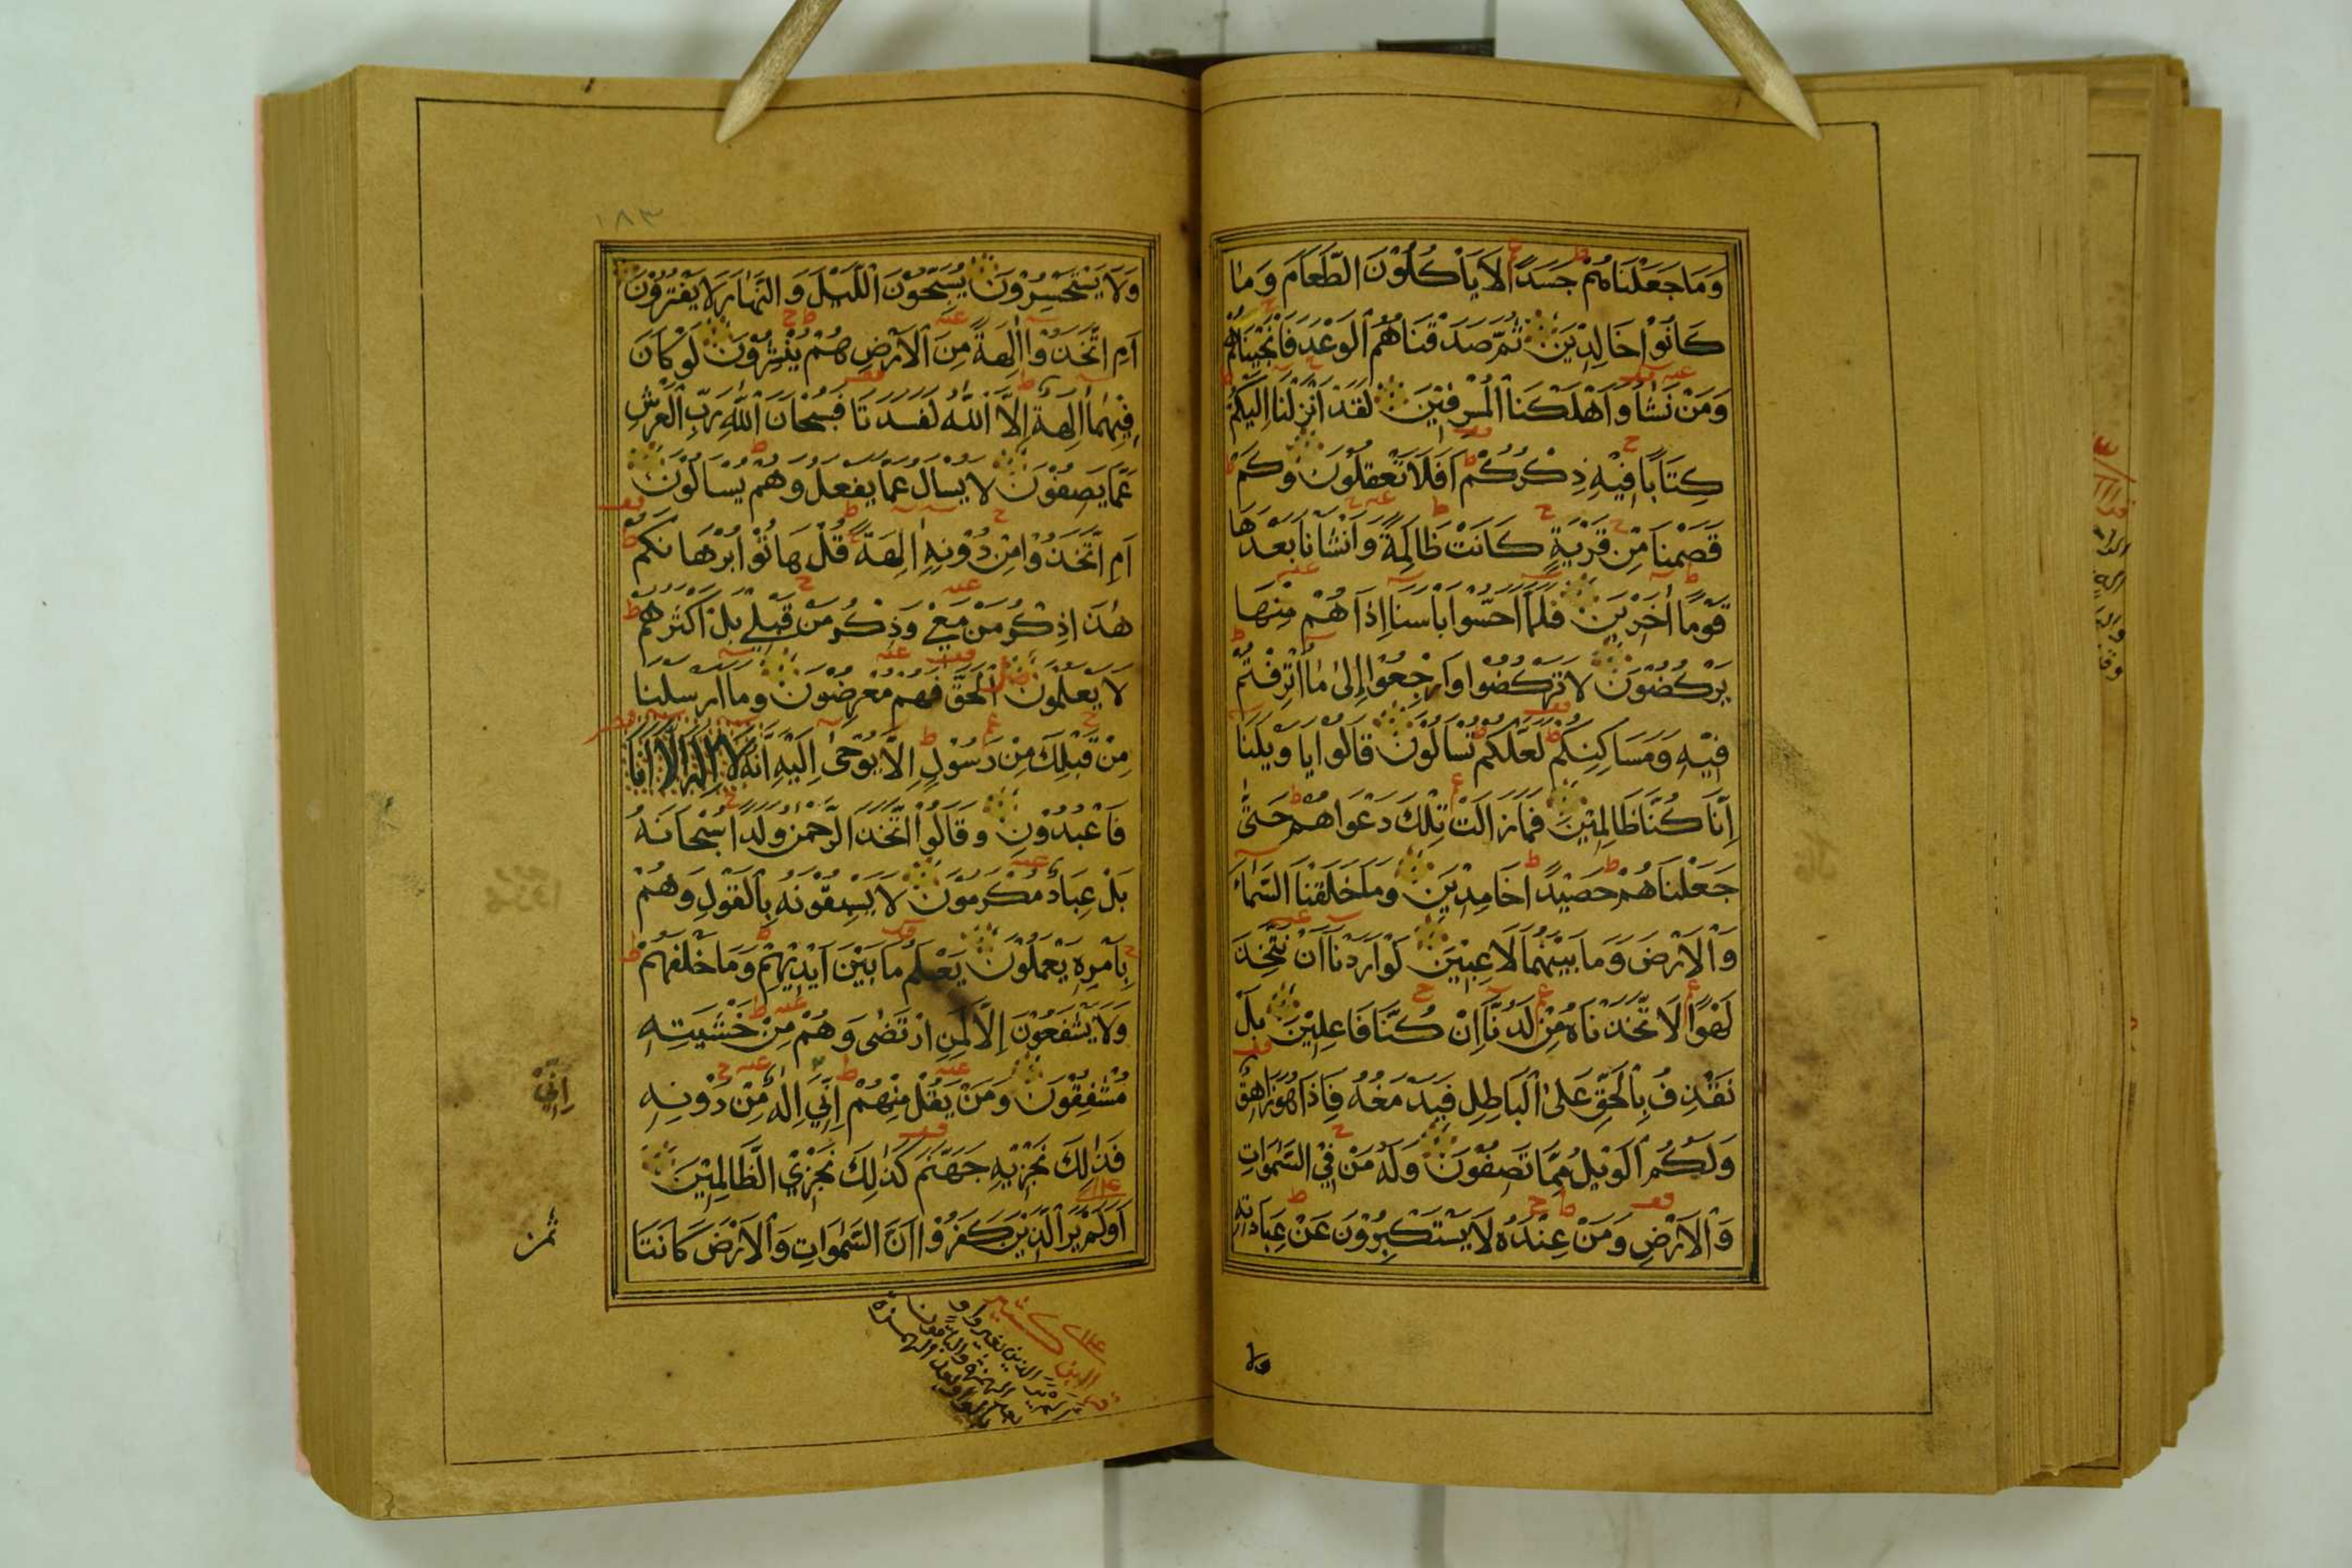 وَمَا جَعَلْنَاهُمْ جَسَدًا لَا يَأْكُلُوْنَ الطَّعَامَ وَمَا
كَانُوْا خَالِدِيْنَ ثُمَّ صَدَقْنَاهُمُ الْوَعْدَ فَاَنْجَيْنَاهُمْ
وَمَنْ نَشَاءُ وَاَهْلَكْنَا الْمُسْرِفِيْنَ لَقَدْ اَنْزَلْنَا اِلَيْكُمْ
كِتَابًا فِيْهِ ذِكْرُكُمْ اَفَلَا تَعْقِلُوْنَ وَكَمْ
قَصَمْنَا مِنْ قَرْيَةٍ كَانَتْ ظَالِمَةً وَاَنْشَانَا بَعْدَهَا
قَوْمًا اٰخَرِيْنَ فَلَمَّا اَحَسُّوْا بَاْسَنَا اِذَا هُمْ مِنْهَا
يَرْكُضُوْنَ لَا تَرْكُضُوْا وَارْجِعُوْا اِلٰى مَا اُتْرِفْتُمْ
فِيْهِ وَمَسَاكِنِكُمْ لَعَلَّكُمْ تُسْاَلُوْنَ قَالُوْا يَا وَيْلَنَا
اِنَّا كُنَّا ظَالِمِيْنَ فَمَا زَالَتْ تِلْكَ دَعْوَاهُمْ حَتّٰى
جَعَلْنَاهُمْ حَصِيْدًا خَامِدِيْنَ وَمَا خَلَقْنَا السَّمَاءَ
وَالْاَرْضَ وَمَا بَيْنَهُمَا لَاعِبِيْنَ لَوْ اَرَدْنَا اَنْ نَتَّخِذَ
لَهْوًا لَاتَّخَذْنَاهُ مِنْ لَدُنَّا اِنْ كُنَّا فَاعِلِيْنَ بَلْ
نَقْذِفُ بِالْحَقِّ عَلَى الْبَاطِلِ فَيَدْمَغُهُ فَاِذَا هُوَ زَاهِقٌ
وَلَكُمُ الْوَيْلُ مِمَّا تَصِفُوْنَ وَلَهُ مَنْ فِي السَّمٰوَاتِ
وَالْاَرْضِ وَمَنْ عِنْدَهُ لَا يَسْتَكْبِرُوْنَ عَنْ عِبَادَتِهِ
١٨٣
وَلَا يَسْتَحْسِرُوْنَ يُسَبِّحُوْنَ اللَّيْلَ وَالنَّهَارَ لَا يَفْتُرُوْنَ
اَمِ اتَّخَذُوْا اٰلِهَةً مِنَ الْاَرْضِ هُمْ يُنْشِرُوْنَ لَوْ كَانَ
فِيْهِمَا اٰلِهَةٌ اِلَّا اللّٰهُ لَفَسَدَتَا فَسُبْحَانَ اللّٰهِ رَبِّ الْعَرْشِ
عَمَّا يَصِفُوْنَ لَا يُسْاَلُ عَمَّا يَفْعَلُ وَهُمْ يُسْاَلُوْنَ
اَمِ اتَّخَذُوْا مِنْ دُوْنِهِ اٰلِهَةً قُلْ هَاتُوْا بُرْهَانَكُمْ
هٰذَا ذِكْرُ مَنْ مَعِيْ وَذِكْرُ مَنْ قَبْلِيْ بَلْ اَكْثَرُهُمْ
لَا يَعْلَمُوْنَ الْحَقَّ فَهُمْ مُعْرِضُوْنَ وَمَا اَرْسَلْنَا
مِنْ قَبْلِكَ مِنْ رَسُوْلٍ اِلَّا يُوْحٰى اِلَيْهِ اَنَّهُ لَا اِلٰهَ اِلَّا اَنَا
فَاعْبُدُوْنِ وَقَالُوا اتَّخَذَ الرَّحْمٰنُ وَلَدًا سُبْحَانَهُ
بَلْ عِبَادٌ مُكْرَمُوْنَ لَا يَسْبِقُوْنَهُ بِالْقَوْلِ وَهُمْ
بِاَمْرِهِ يَعْمَلُوْنَ يَعْلَمُ مَا بَيْنَ اَيْدِيْهِمْ وَمَا خَلْفَهُمْ
وَلَا يَشْفَعُوْنَ اِلَّا لِمَنِ ارْتَضٰى وَهُمْ مِنْ خَشْيَتِهِ
مُشْفِقُوْنَ وَمَنْ يَقُلْ مِنْهُمْ اِنِّيَ اِلٰهٌ مِنْ دُوْنِهِ
اِنِّيْ
فَذٰلِكَ نَجْزِيْهِ جَهَنَّمَ كَذٰلِكَ نَجْزِي الظَّالِمِيْنَ
اَوَلَمْ يَرَ الَّذِيْنَ كَفَرُوْا اَنَّ السَّمٰوَاتِ وَالْاَرْضَ كَانَتَا
ثُمن